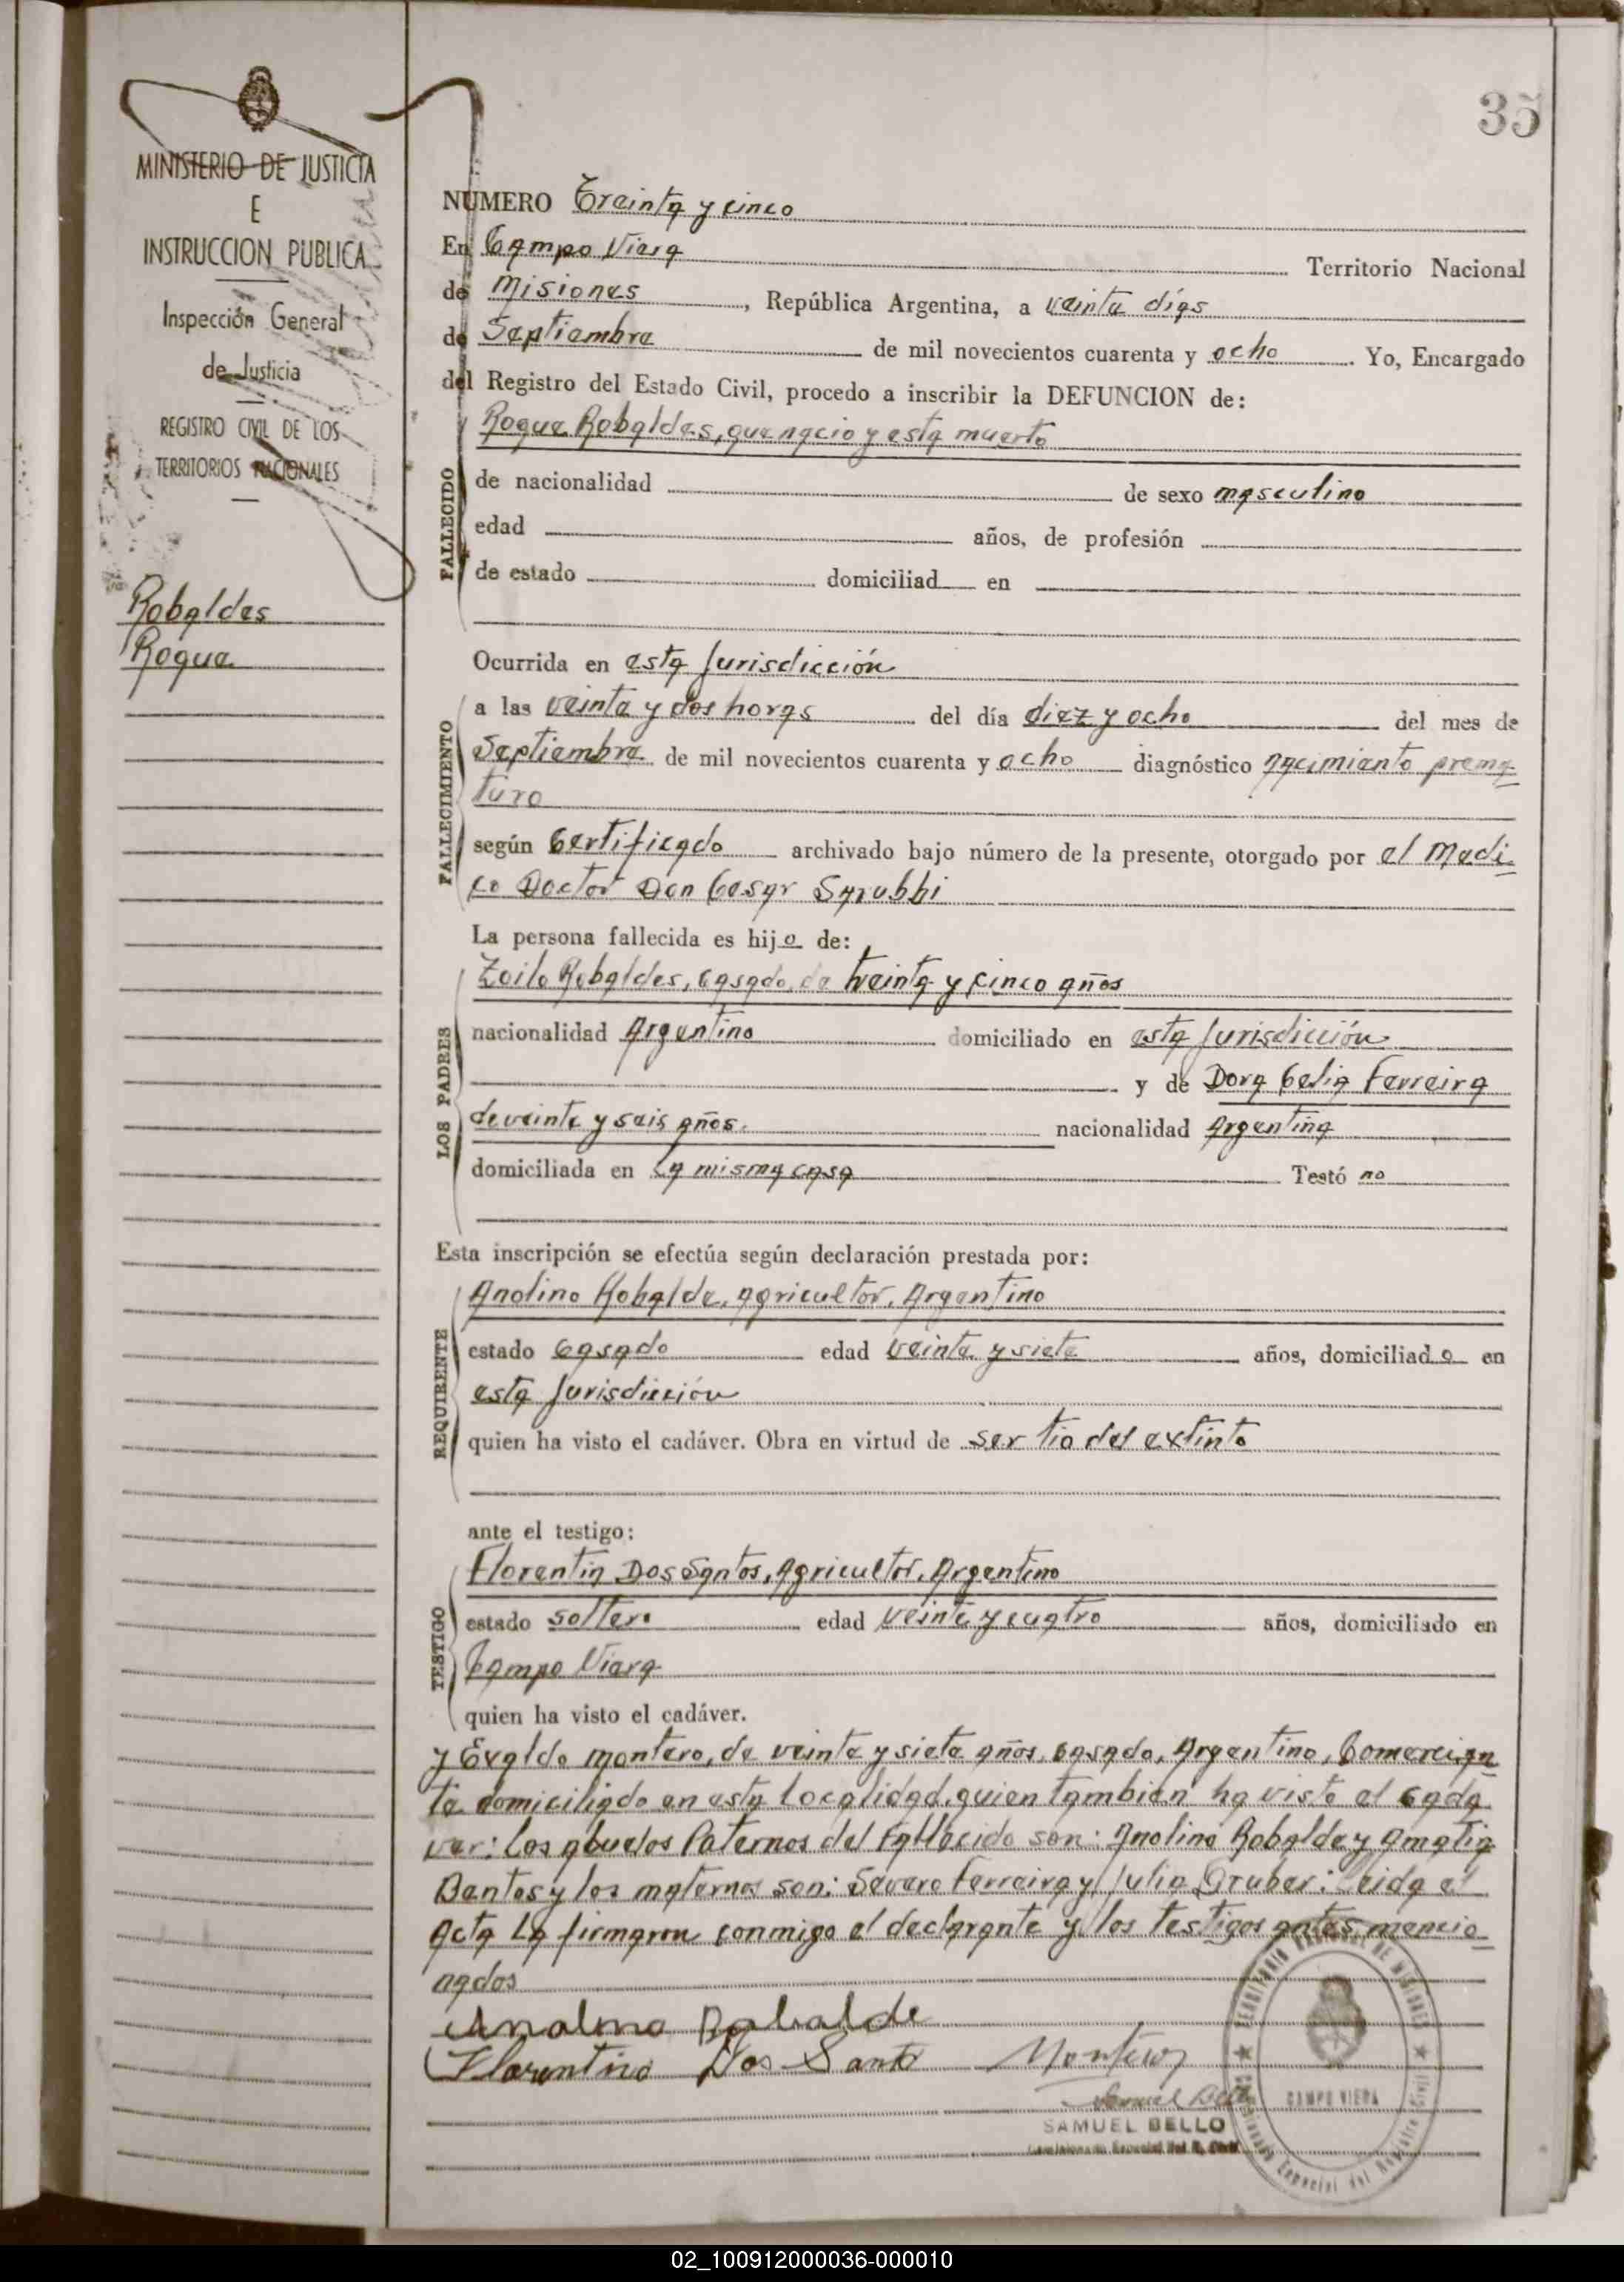 35
MINISTERIO DE JUSTICIA
E
INSTRUCCION PUBLICA
Inspección General
de Justicia
REGISTRO CIVIL DE LOS
TERRITORIOS NACIONALES
Robaldes
Roque
NUMERO Treinta y cinco
En Campo Viera Territorio Nacional
de Misiones, República Argentina, a veinte días
de Septiembre de mil novecientos cuarenta y ocho. Yo, Encargado
del Registro del Estado Civil, procedo a inscribir la DEFUNCION de:
Roque Robaldes, que nacio y esta muerto
FALLECIDO
de nacionalidad de sexo masculino
edad años, de profesión
de estado domiciliad en
Ocurrida en esta Jurisdicción
FALLECIMIENTO
a las veinte y dos horas del día diez y ocho del mes de
Septiembre de mil novecientos cuarenta y ocho diagnóstico nacimiento prema
turo
según Certificado archivado bajo número de la presente, otorgado por el Medi-
co Doctor Don Cesar
La persona fallecida es hijo de:
LOS PADRES
Zoilo Robaldes, casado, de treinta y cinco años
nacionalidad Argentino domiciliado en esta Jurisdicción
y de Dora Celia Ferreira
de veinte y seis años. nacionalidad Argentina
domiciliada en La misma casa Testó no
Esta inscripción se efectúa según declaración prestada por:
REQUIRENTE
Anolino Robalde, Agricultor, Argentino
estado casado edad veinte y siete años, domiciliado en
esta Jurisdicción
quien ha visto el cadáver. Obra en virtud de ser tio del extinto
ante el testigo:
TESTIGO
Florentin Dos Santos, Agricultor, Argentino
estado soltero edad veinte y cuatro años, domiciliado en
Campo Viera
quien ha visto el cadáver.
y Evaldo Montero, de veinte y siete años, casado, Argentino, Comercian
te domiciliado en esta Localidad, quien tambien ha visto el cada
ver: Los abuelos Paternos del Fallecido son: Anolino Robalde y Amalia
Bentos y los maternos son: Severo Ferreira y Julia Gruber: Leida el
Acta La firmaron conmigo el declarante y los testigos antes mencio
nados
Anolino Robalde
Florentino Dos Santo Montero
Samuel Bello
SAMUEL BELLO
Comisionado Especial del R. Civil
TERRITORIO NACIONAL DE MISIONES
CAMPO VIERA
Comisionado Especial del Registro Civil
02_100912000036-000010